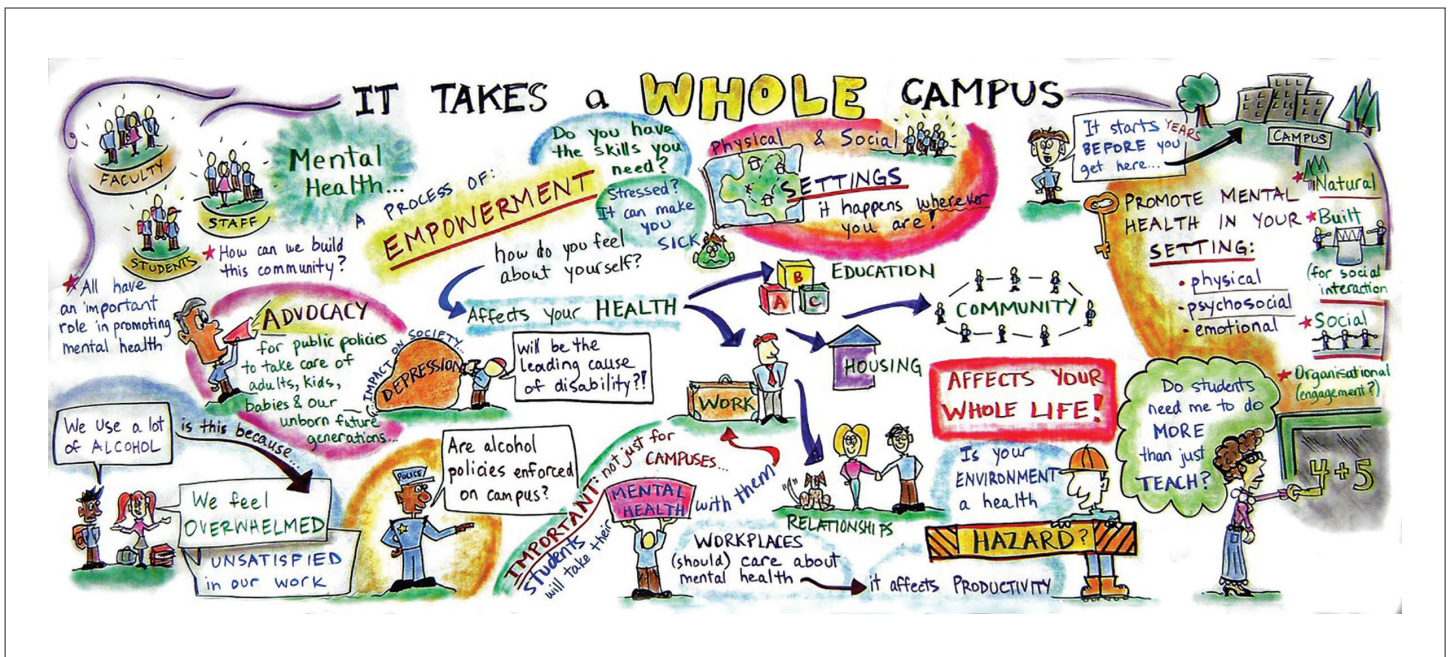 IT TAKES a WHOLE CAMPUS
FACULTY
STAFF
STUDENTS
★ How can we build
this community?
★ All have
an important
role in promoting
mental health
Mental
Health...
A PROCESS OF:
EMPOWERMENT
Do you have
the skills you
need?
Stressed?
It can make
you
SICK
how do you feel
about yourself?
Affects your HEALTH
Physical & Social
SETTINGS
it happens wherever
you are!
It starts YEARS
BEFORE you
get here...
CAMPUS
PROMOTE MENTAL
HEALTH IN YOUR
SETTING:
• physical
• psychosocial
• emotional
★ Natural
★ Built
(for social
interaction
★ Social
★ Organisational
(engagement?)
ADVOCACY
for public policies
to take care of
adults, kids,
babies & our
unborn future
generations...
IMPACT ON SOCIETY...
DEPRESSION
Will be the
leading cause
of disability?!
B
A C
EDUCATION
COMMUNITY
HOUSING
WORK
AFFECTS YOUR
WHOLE LIFE!
We use a lot
of ALCOHOL
is this because...
We feel
OVERWHELMED
UNSATISFIED
in our work
POLICE
Are alcohol
policies enforced
on campus?
IMPORTANT: not just for
CAMPUSES...
students
will take their
MENTAL
HEALTH
with them
RELATIONSHIPS
WORKPLACES
(should) care about
mental health
it affects PRODUCTIVITY
Is your
ENVIRONMENT
a health
HAZARD?
Do students
need me to do
MORE
than just
TEACH?
4+5